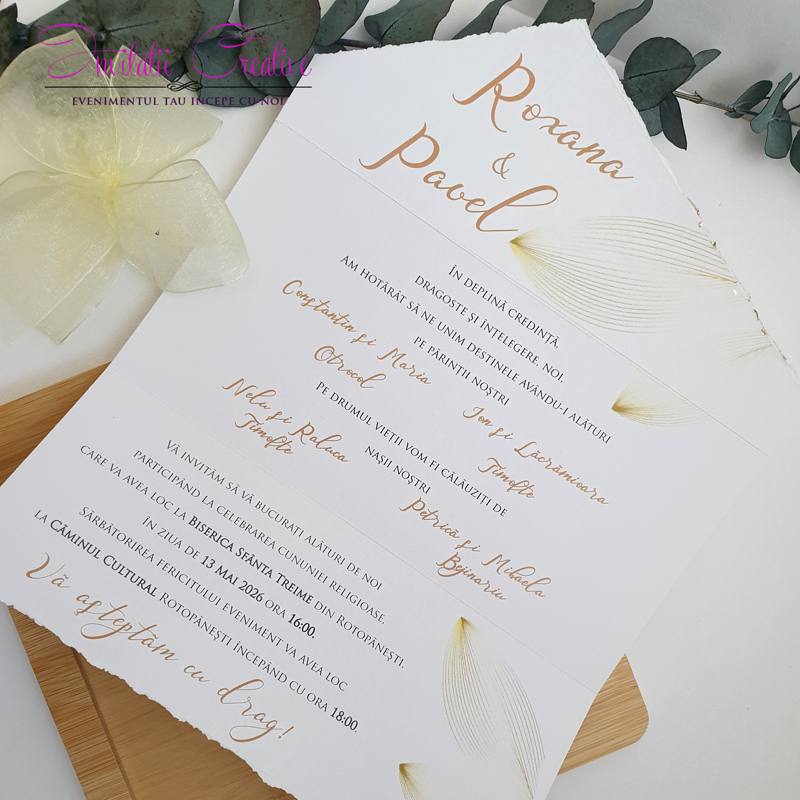 Invitatii Creative
EVENIMENTUL TAU INCEPE CU NOI
Roxana
&
Pavel
ÎN DEPLINĂ CREDINȚĂ,
DRAGOSTE ȘI ÎNȚELEGERE, NOI,
AM HOTĂRÂT SĂ NE UNIM DESTINELE AVÂNDU-I ALĂTURI
PE PĂRINȚII NOȘTRI
Constantin și Maria
Otrocol
Ion și Lăcrămioara
Timofte
PE DRUMUL VIEȚII VOM FI CĂLĂUZIȚI DE
NAȘII NOȘTRI
Nelu și Raluca
Timofte
Petrică și Mihaela
Bejinariu
VĂ INVITĂM SĂ VĂ BUCURAȚI ALĂTURI DE NOI
PARTICIPÂND LA CELEBRAREA CUNUNIEI RELIGIOASE,
CARE VA AVEA LOC LA BISERICA SFÂNTA TREIME DIN ROTOPĂNEȘTI,
ÎN ZIUA DE 13 MAI 2026 ORA 16:00.
SĂRBĂTORIREA FERICITULUI EVENIMENT VA AVEA LOC
LA CĂMINUL CULTURAL ROTOPĂNEȘTI ÎNCEPÂND CU ORA 18:00.
Vă așteptăm cu drag!